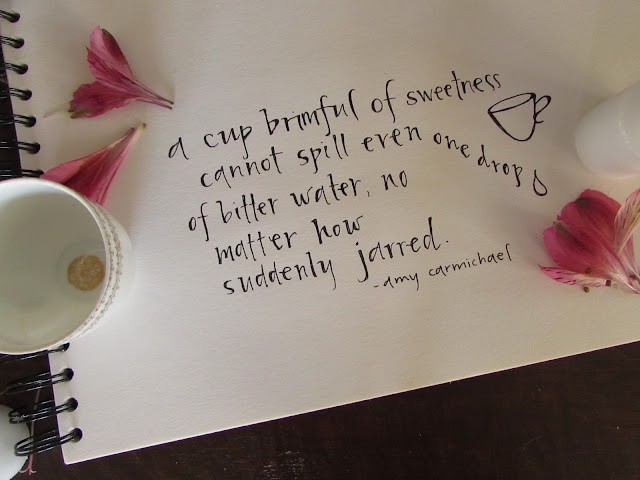 a cup brimful of sweetness
cannot spill even one drop
of bitter water, no
matter how
suddenly jarred.
-amy carmichael